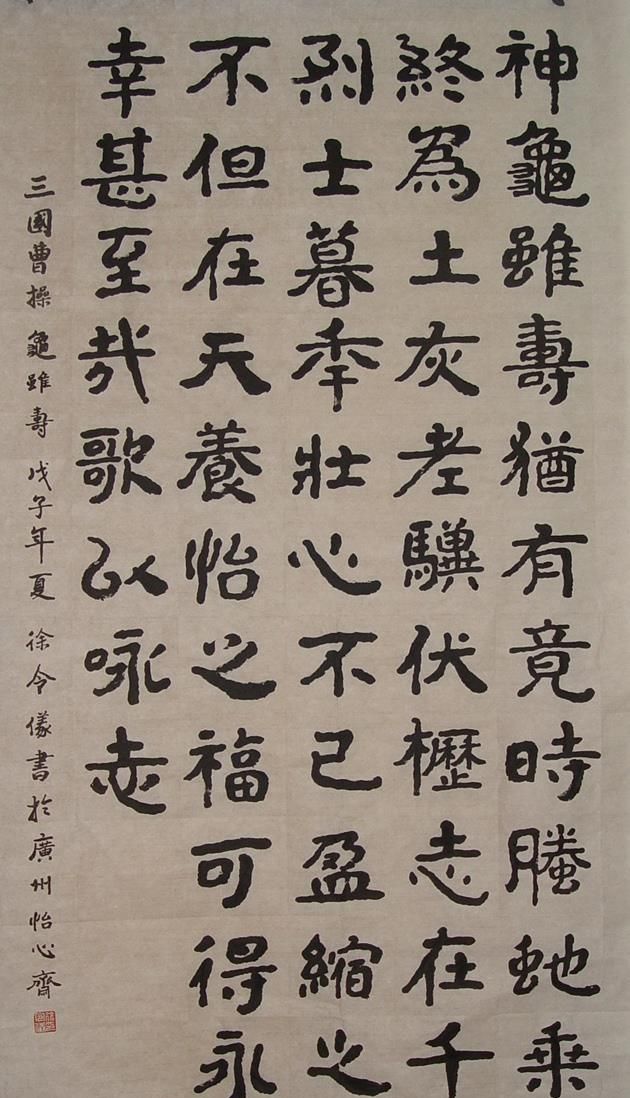 神龜雖壽猶有竟時螣蛇乗
終為土灰老驥伏櫪志在千
烈士暮年壯心不已盈縮之
不但在天養怡之福可得永
幸甚至哉歌以咏志
三國曹操龜雖壽 戊子年夏 徐令儀書於廣州怡心齋